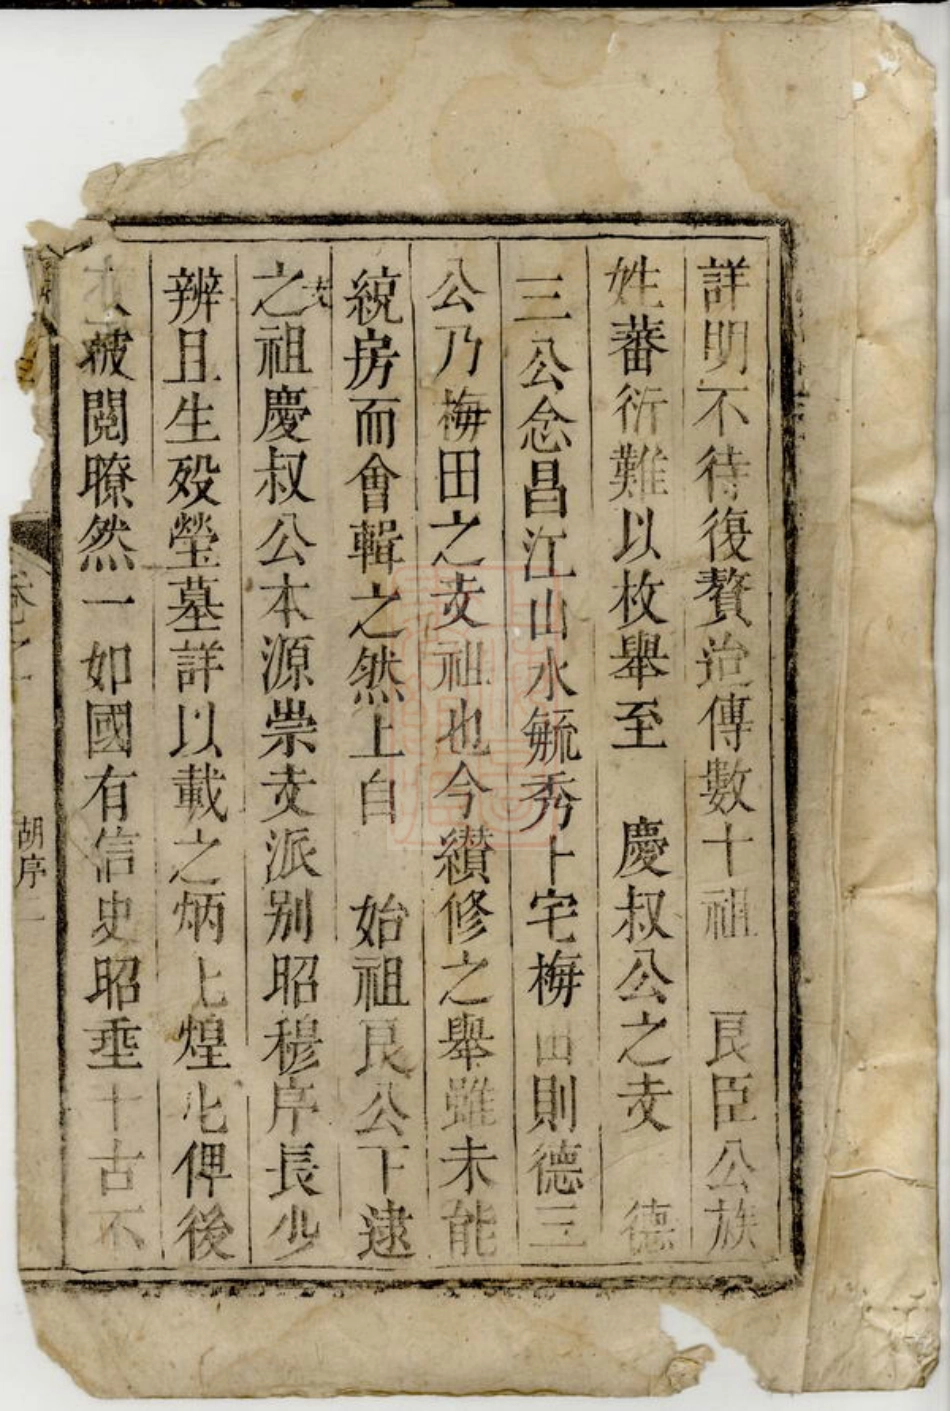 詳明不待復贅迨傳數十祖　良臣公族
姓蕃衍難以枚舉至　慶叔公之支　德
三公念昌江山水毓秀卜宅梅田則德三
公乃梅田之支祖也今纘修之舉雖未能
統房而會輯之然上自　始祖良公下逮
之支祖慶叔公本源崇支派别昭穆序長少
辨且生殁塋墓詳以載之炳上煌比俾後
披閱瞭然一如國有信史昭垂千古不
卷之一
胡序二